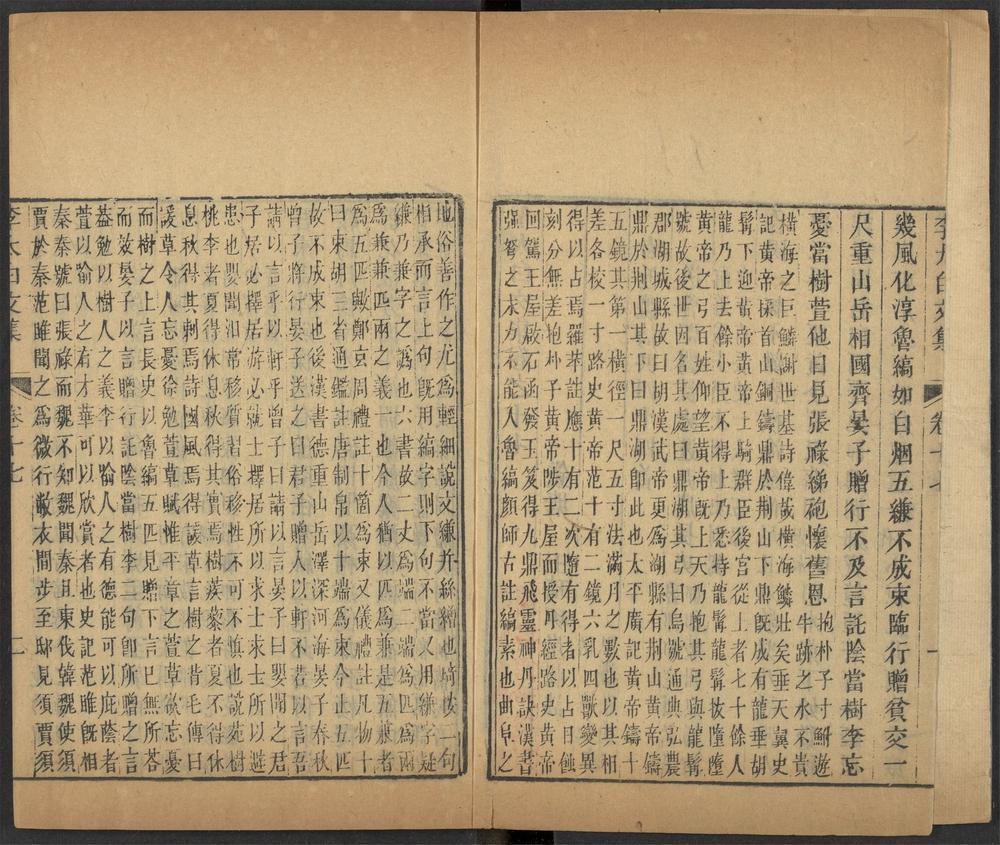 李太白文集 卷十七 一
幾風化淳魯縞如白烟五縑不成束臨行贈貧交一
尺重山岳相國齊晏子贈行不及言託陰當樹李忘
憂當樹萱他日見張祿綈袍懷舊恩抱朴子寸鮒遊牛跡之水不貴
橫海之巨鱗謝世基詩偉哉橫海鱗壯矣垂天翼史
記黃帝採首山銅鑄鼎於荆山下鼎既成有龍垂胡
髯下迎黃帝黃帝上騎群臣後宮從上者七十餘人
龍乃上去餘小臣不得上乃悉持龍髯龍髯拔墮墮
黃帝之弓百姓仰望黃帝既上天乃抱其弓與龍髯
號故後世因名其處曰鼎湖其弓曰烏號通典弘農
郡湖城縣故曰胡漢武帝更爲湖縣有荆山黃帝鑄
鼎於荆山其下曰鼎湖即此也太平廣記黃帝鑄十
五鏡其第一橫徑一尺五寸法滿月之數也以其相
差各校一寸路史黃帝范十有二鏡六乳四獸變異
得以占焉羅苹註應十有二次隨有得者以占日蝕
刻分無差抱朴子黃帝陟王屋而授丹經路史黃帝
回駕王屋啟石函發玉笈得九鼎飛靈神丹訣漢書
强弩之末力不能入魯縞顔師古註縞素也曲阜之
地俗善作之尤爲輕細說文縑并絲繒也琦按一句
相承而言上句既用縞字則下句不當又用縑字疑
縑乃兼字之譌也六書故二丈爲端二端爲匹爲兩
爲兼兼匹兩之義一也今人猶以匹爲兼是五兼者
爲五匹歟鄭京周禮註十箇爲束又儀禮註凡物十
曰束胡三省通鑑註唐制帛以十端爲束今止五匹
故不成束也後漢書德重山岳澤深河海晏子春秋
曾子將行晏子送之曰君子贈人以軒不若以言吾
請以言乎以軒乎曾子曰請以言晏子曰嬰聞之君
子居必擇居游必就士擇居所以求士求士所以避
患也嬰聞汩常移質習俗移性不可不慎也說苑樹
桃李者夏得休息秋得其實焉樹蒺藜者夏不得休
息秋得其刺焉詩國風焉得諼草言樹之背毛傳曰
諼草令人忘憂徐勉萱草賦惟平章之萱草欲忘憂
而樹之上言長史以魯縞五匹見贈下言已無所答
而效晏子以言贈行託陰當樹李二句即所贈之言
葢勉以樹人之義李以喻人之有德能可以庇蔭者
萱以喻人之有才華可以欣賞者也史記范雎既相
秦秦號曰張祿而魏不知魏聞秦且東伐韓魏使須
賈於秦范雎聞之爲微行敝衣間步至邸見須賈須
李太白文集 卷十七